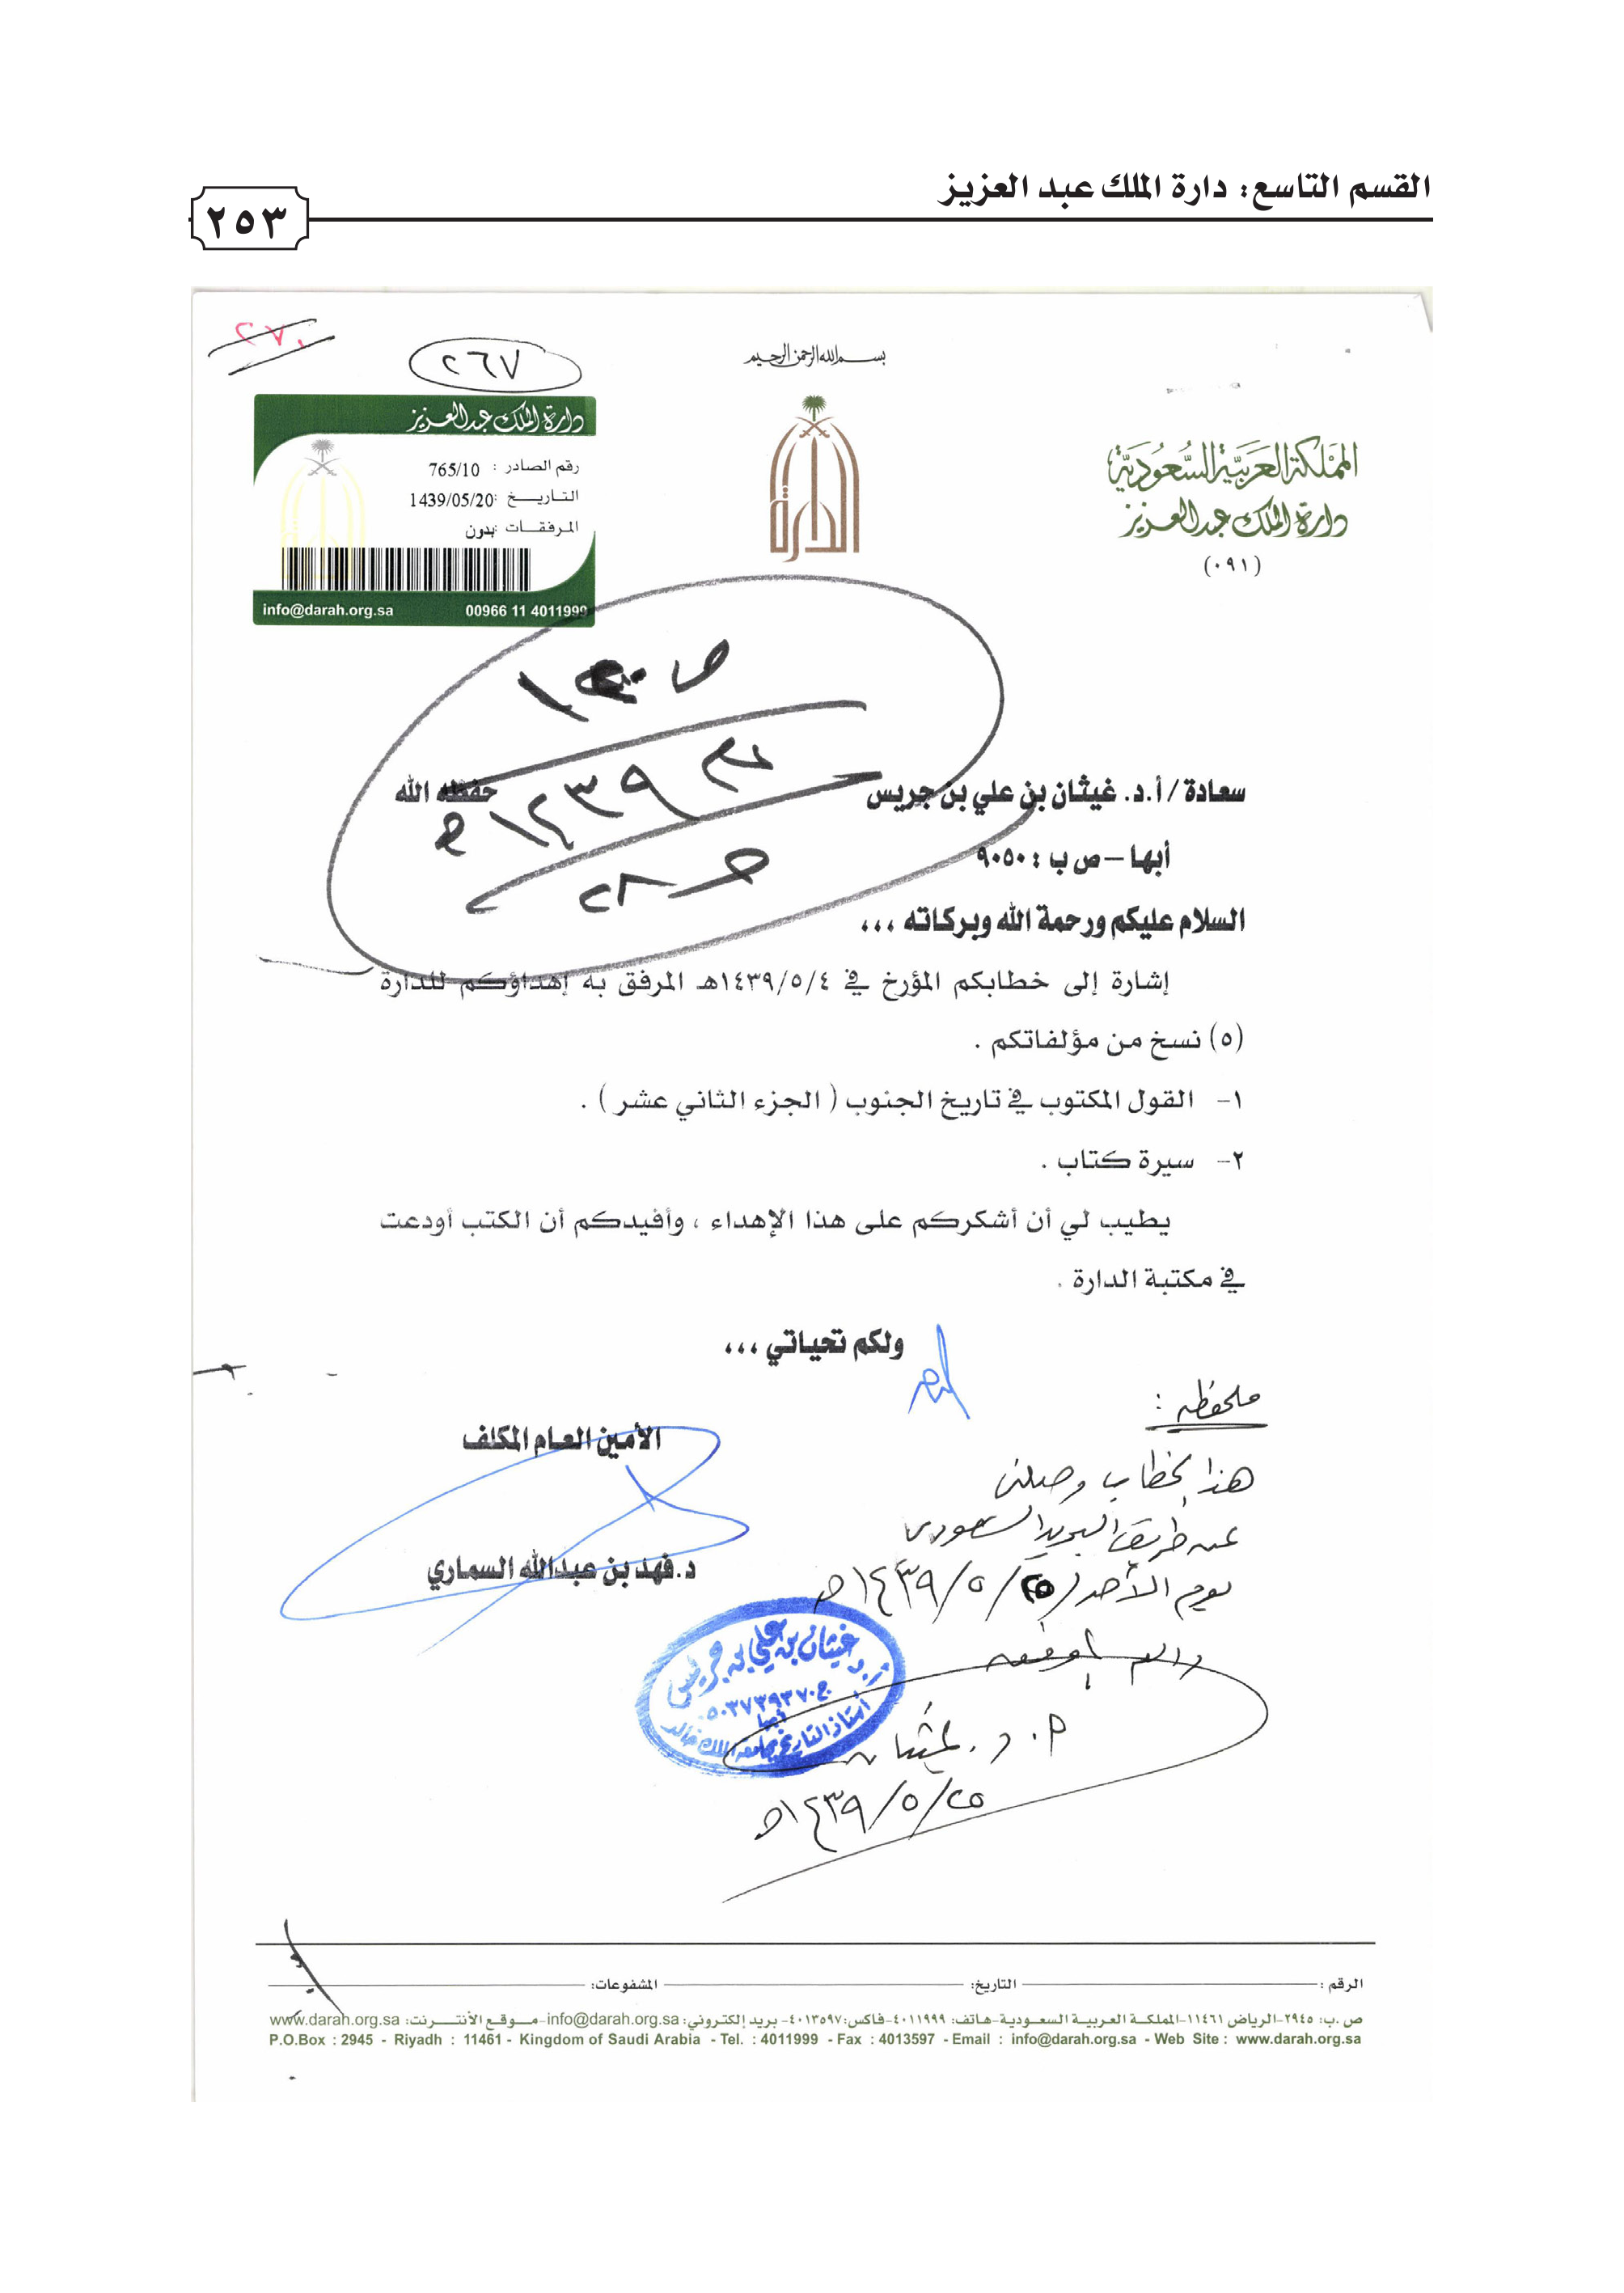 القسم التاسع: دارة الملك عبد العزيز
٢٥٣
٢٧٠
٢٦٧
بسم الله الرحمن الرحيم
المملكة العربية السعودية
دارة الملك عبدالعزيز
(٠٩١)
دارة الملك عبدالعزيز
رقم الصادر : 765/10
التاريخ :1439/05/20
المرفقات :بدون
info@darah.org.sa 00966 11 4011999
سعادة / أ.د. غيثان بن علي بن جريس حفظه الله
أبها – ص ب : ٩٠٥٠
السلام عليكم ورحمة الله وبركاته ،،،
إشارة إلى خطابكم المؤرخ في ١٤٣٩/٥/٤هـ المرفق به إهداؤكم للدارة
(٥) نسخ من مؤلفاتكم .
١- القول المكتوب في تاريخ الجنوب ( الجزء الثاني عشر ) .
٢- سيرة كتاب .
يطيب لي أن أشكركم على هذا الإهداء ، وأفيدكم أن الكتب أودعت
في مكتبة الدارة .
ولكم تحياتي ،،،
الأمين العام المكلف
د.فهد بن عبدالله السماري
ملحوظه :
هذا الخطاب وصلني
عن طريق البريد السعودي
يوم الأحد (٢٥/٥/١٤٣٩هـ
والله الموفق
أ. د. غيثان
٢٥/٥/١٤٣٩هـ
أ.د غيثان بن علي بن جريس
ج٠٥٠٣٧٣٩٣٧٠
أبها
أستاذ التاريخ بجامعة الملك خالد
الرقم : التاريخ: المشفوعات:
ص .ب: ٢٩٤٥-الرياض ١١٤٦١-المملكة العربية السعودية-هاتف: ٤٠١١٩٩٩-فاكس:٤٠١٣٥٩٧- بريد إلكتروني: info@darah.org.sa-موقع الأنترنت: www.darah.org.sa
P.O.Box : 2945 - Riyadh : 11461 - Kingdom of Saudi Arabia - Tel. : 4011999 - Fax : 4013597 - Email : info@darah.org.sa - Web Site : www.darah.org.sa